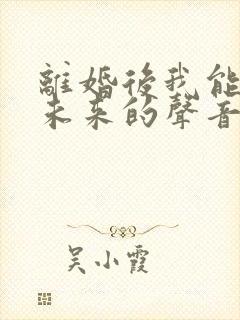 離婚後我能
未来的聲音
吴小霞